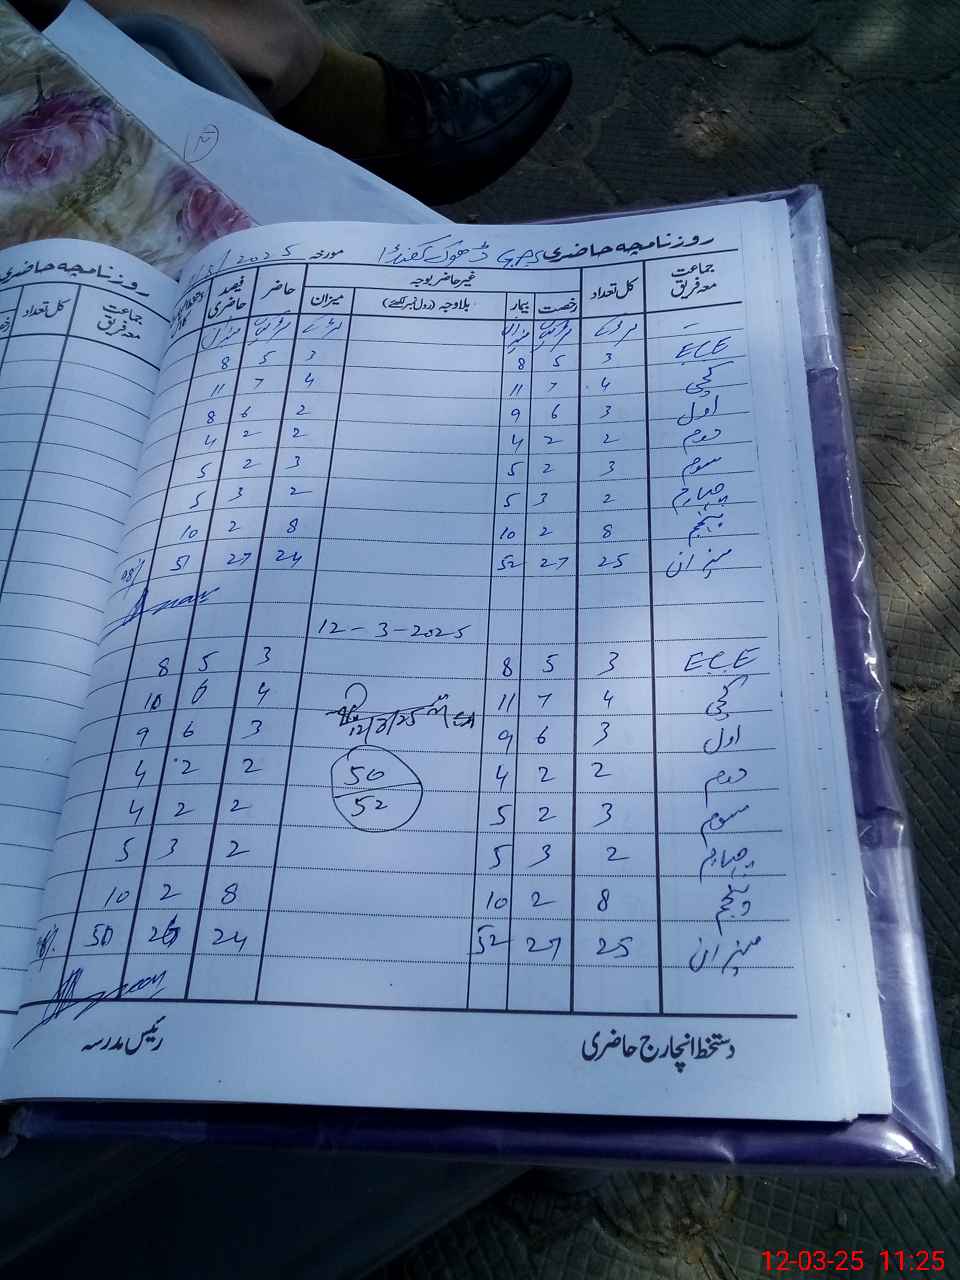 روزنامچہ حاضری GPS ڈھوک کھنڈا مورخہ /3/2025
جماعت معہ فریق کل تعداد غیر حاضر بوجہ حاضر فیصد حاضری
رخصت بیمار بلاوجہ (رول نمبر لکھئے) میزان
ECE 3 5 8 3 5 8
کچی 4 7 11 4 7 11
اول 3 6 9 2 6 8
دوم 2 2 4 2 2 4
سوم 3 2 5 3 2 5
چہارم 2 3 5 2 3 5
پنجم 8 2 10 8 2 10
میزان 25 27 52 24 27 51 98%
12-3-2025
ECE 3 5 8 3 5 8
کچی 4 7 11 4 6 10
اول 3 6 9 3 6 9
12/3/25
دوم 2 2 4 2 2 4
50
52
سوم 3 2 5 2 2 4
چہارم 2 3 5 2 3 5
پنجم 8 2 10 8 2 10
میزان 25 27 52 24 26 50
دستخط انچارج حاضری رئیس مدرسہ
روزنامچہ حاضری
جماعت معہ فریق کل تعداد
12-03-25 11:25